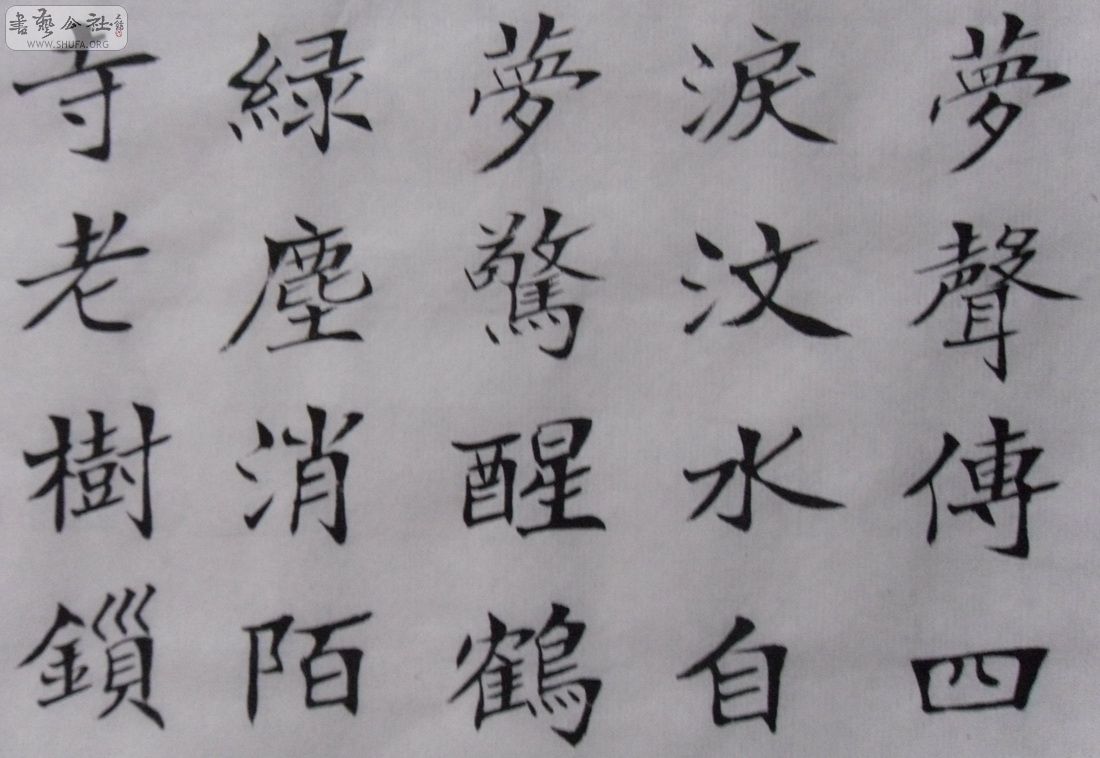 夢聲傳四
淚汶水自
夢驚醒鶴
綠塵消陌
寺老樹鎖
書藝公社
WWW.SHUFA.ORG